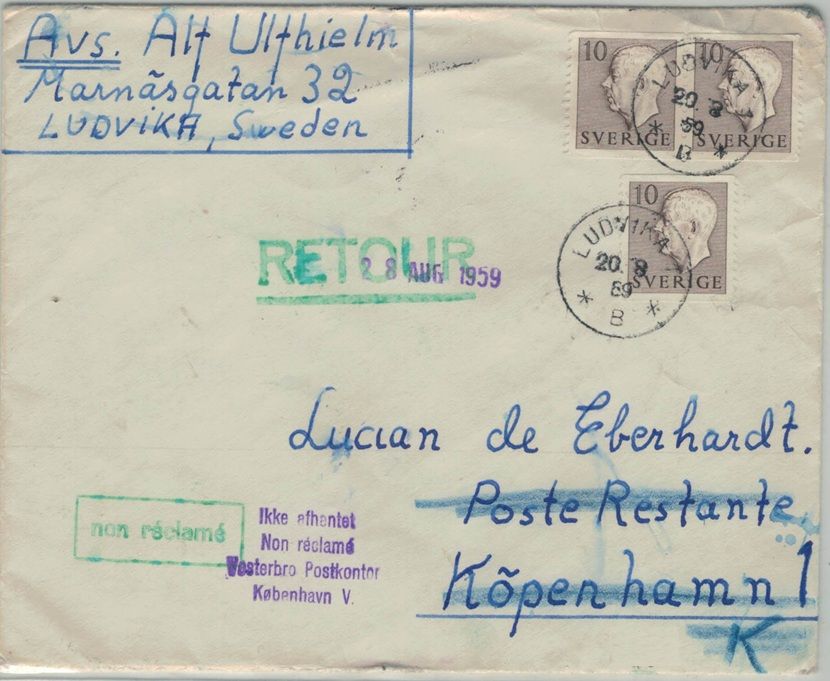 Avs. Alf Ulfhielm
Marnäsgatan 32
LUDVIKA, Sweden
10
SVERIGE
10
SVERIGE
LUDVIKA 1
20. 8
59
* B *
10
SVERIGE
LUDVIKA 1
20. 8
59
* B *
RETOUR
28 AUG 1959
Lucian de Eberhardt.
Poste Restante,
Köpenhamn 1
K
non réclamé
Ikke afhentet
Non réclamé
Vesterbro Postkontor
København V.